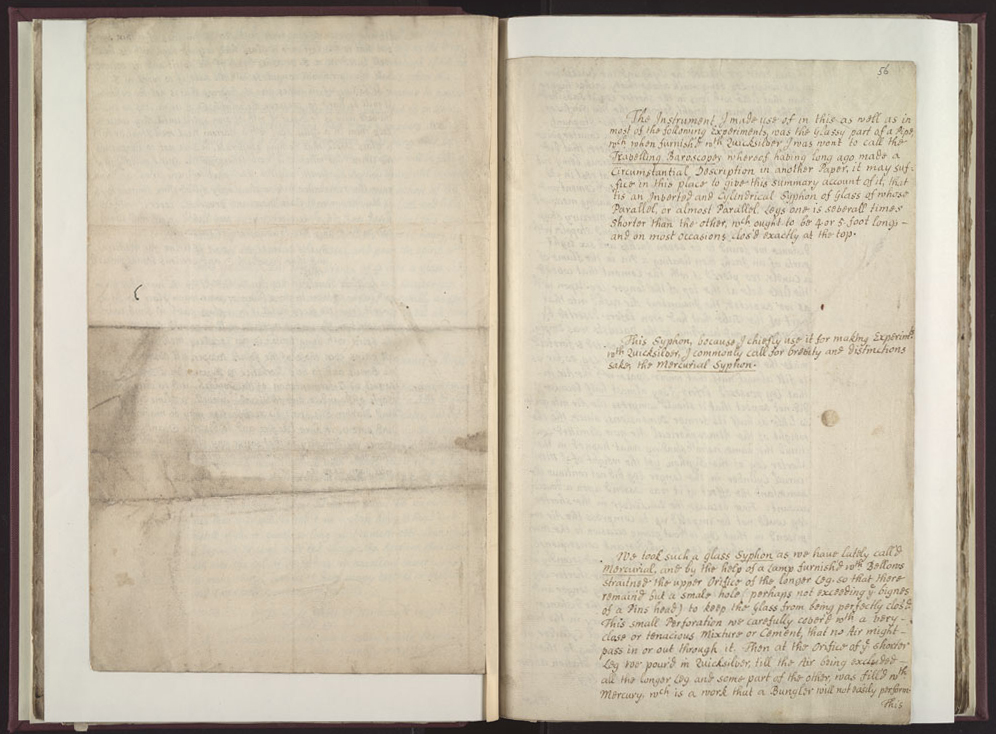 56
The Instrument I made use of in this as well as in
most of the following Experiments, was the Glassy part of a Pipe,
wch when furnish'd wth Quicksilver I was wont to call the
Travelling Baroscope, whereof having long ago made a
Circumstantial Description in another Paper, it may suf-
fice in this place to give this summary account of it, that
'tis an Inverted and Cylindrical Syphon of Glass of whose
Parallel, or almost Parallel, Legs one is severall times
shorter than the other, wch ought to be 4 or 5 foot long,-
and on most occasions clos'd exactly at the top.
This Syphon, because I chiefly use it for making Experimts
wth Quicksilver, I commonly call for brevity and distinctions
sake, the Mercurial Syphon.
We took such a Glass Syphon as we have lately call'd
Mercurial, and by the help of a Lamp furnish'd wth Bellows
straitned the upper Orifice of the longer Leg, so that there
remaind but a smale hole (perhaps not exceeding ye bignes
of a Pins head) to keep the Glass from being perfectly clos'd
This small Perforation we carefully cover'd wth a very-
close or tenacious Mixture or Cement, that no Air might-
pass in or out through it. Then at the Orifice of ye shorter
Leg we pour'd in Quicksilver, till the Air being excluded-
all the longer Leg and some part of the other, was fill'd wth
Mercury, wch is a work that a Bungler will not easily perform
This